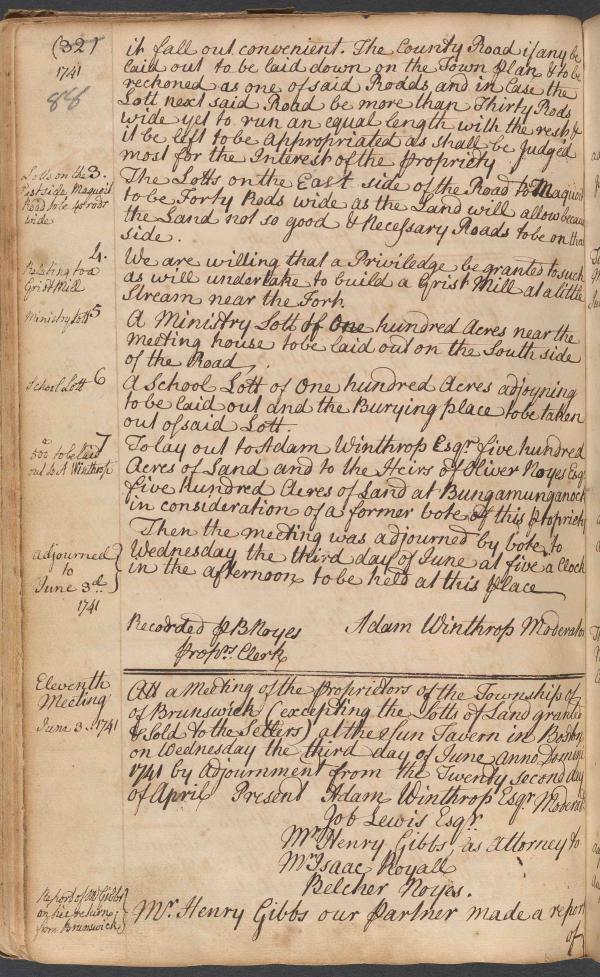 (32)
1741
88
it fall out convenient. The County Road if any be
laid out to be laid down on the Town Plan & to be
reckoned as one of said Rodds and in Case the
Lott next said Road be more than Thirty Rods
wide yet to run an equal length with the rest &
it be left to be appropriated as shall be Judged
most for the Interest of the Propriety
Lotts on the 3.
East side Maquoit
Road to be 40 rods
wide
The Lotts on the East side of the Road to Maquoit
to be Forty Rods wide as the Land will allow because
the Land not so good & Necessary Roads to be on that
side.
4.
Relating to a
Grist Mill
We are willing that a Priviledge be granted to such
as will undertake to build a Grist Mill at a little
Stream near the Fort
Ministry Lott 5
A Ministry Lott of One hundred Acres near the
Meeting house to be laid out on the South side
of the Road
School Lott 6
A School Lott of One hundred Acres adjoyning
to be laid out and the Burying place to be taken
out of said Lott.
7
500 a to be laid
out to A Winthrop
To lay out to Adam Winthrop Esqr. five hundred
Acres of Land and to the Heirs of Oliver Noyes Esqr
five hundred Acres of Land at Bungamunganock
in consideration of a former vote of this Propriety
adjourned
to
June 3d.
1741
Then the meeting was adjourned by vote, to
Wednesday the third day of June at five a Clock
in the afternoon to be held at this place
Recorded P B Noyes
Proprs. Clerk
Adam Winthrop Moderator
Eleventh
Meeting
June 3. 1741
Att a Meeting of the Proprietors of the Township of
of Brunswick (excepting the Lotts of Land granted
& Sold to the Setlers) at the Sun Tavern in Boston
on Wednesday the third day of June Anno Domini
1741 by Adjournment from the Twenty second day
of April Present Adam Winthrop Esqr. Moderat
Job Lewis Esqr
Mr. Henry Gibbs as attorney to
Mr. Isaac Royall
Belcher Noyes.
Report of Mr Gibbs
on his return
from Brunswick
Mr. Henry Gibbs our Partner made a report
of